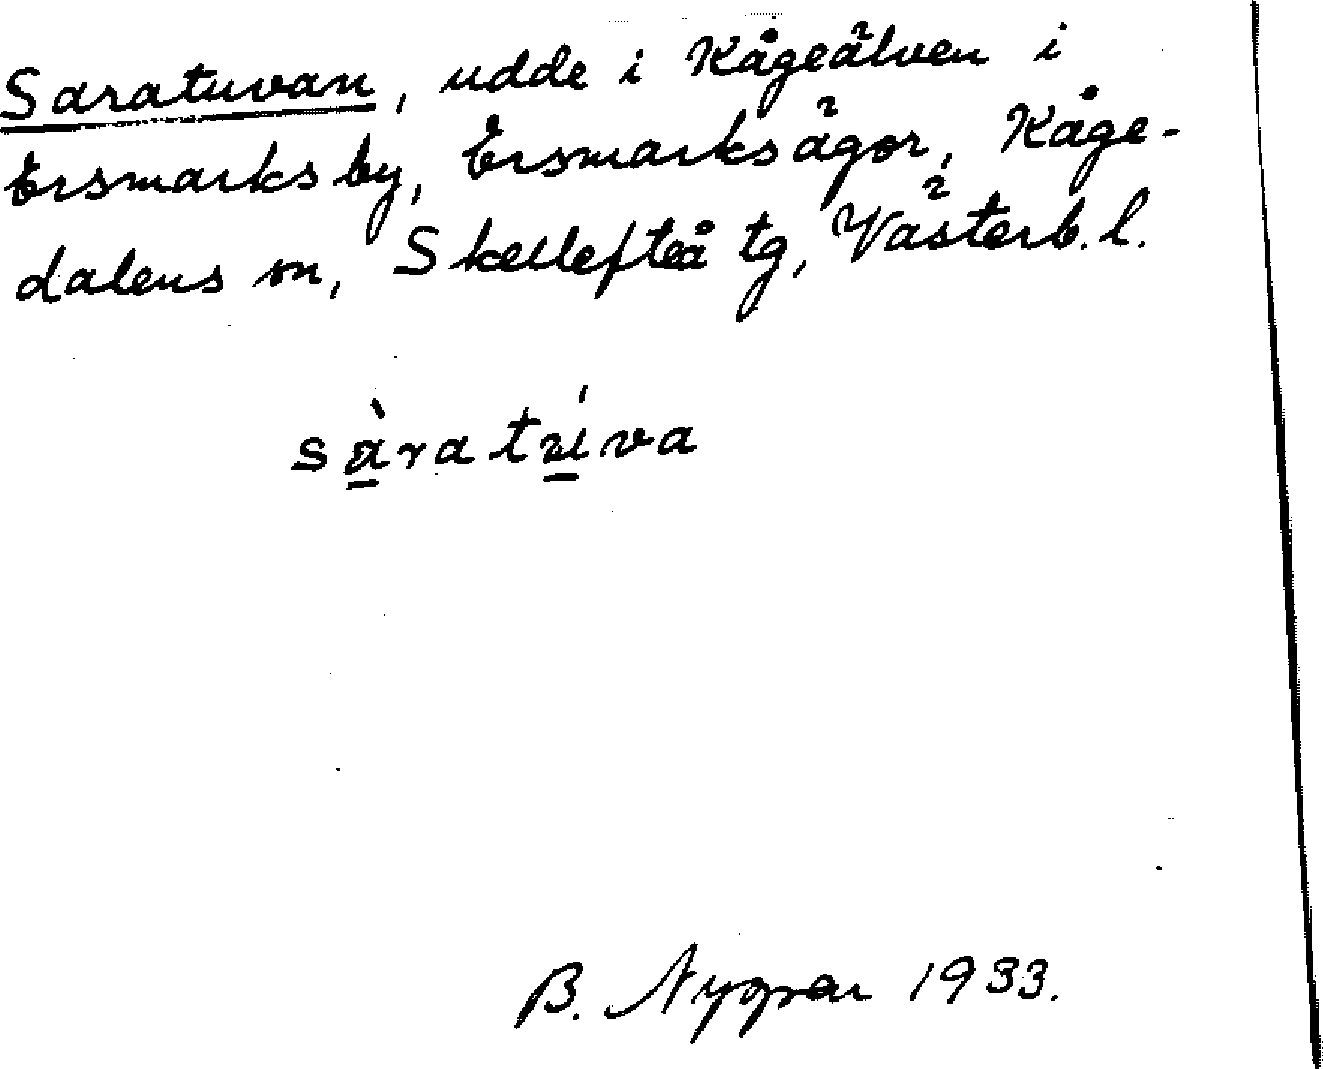 Saratuvan, udde i Kågeälven i
Ersmarks by, Ersmarksägor, Kåge-
dalens sn, Skellefteå tg, Västerb. l.
sàratúva
B. Nygren 1933.